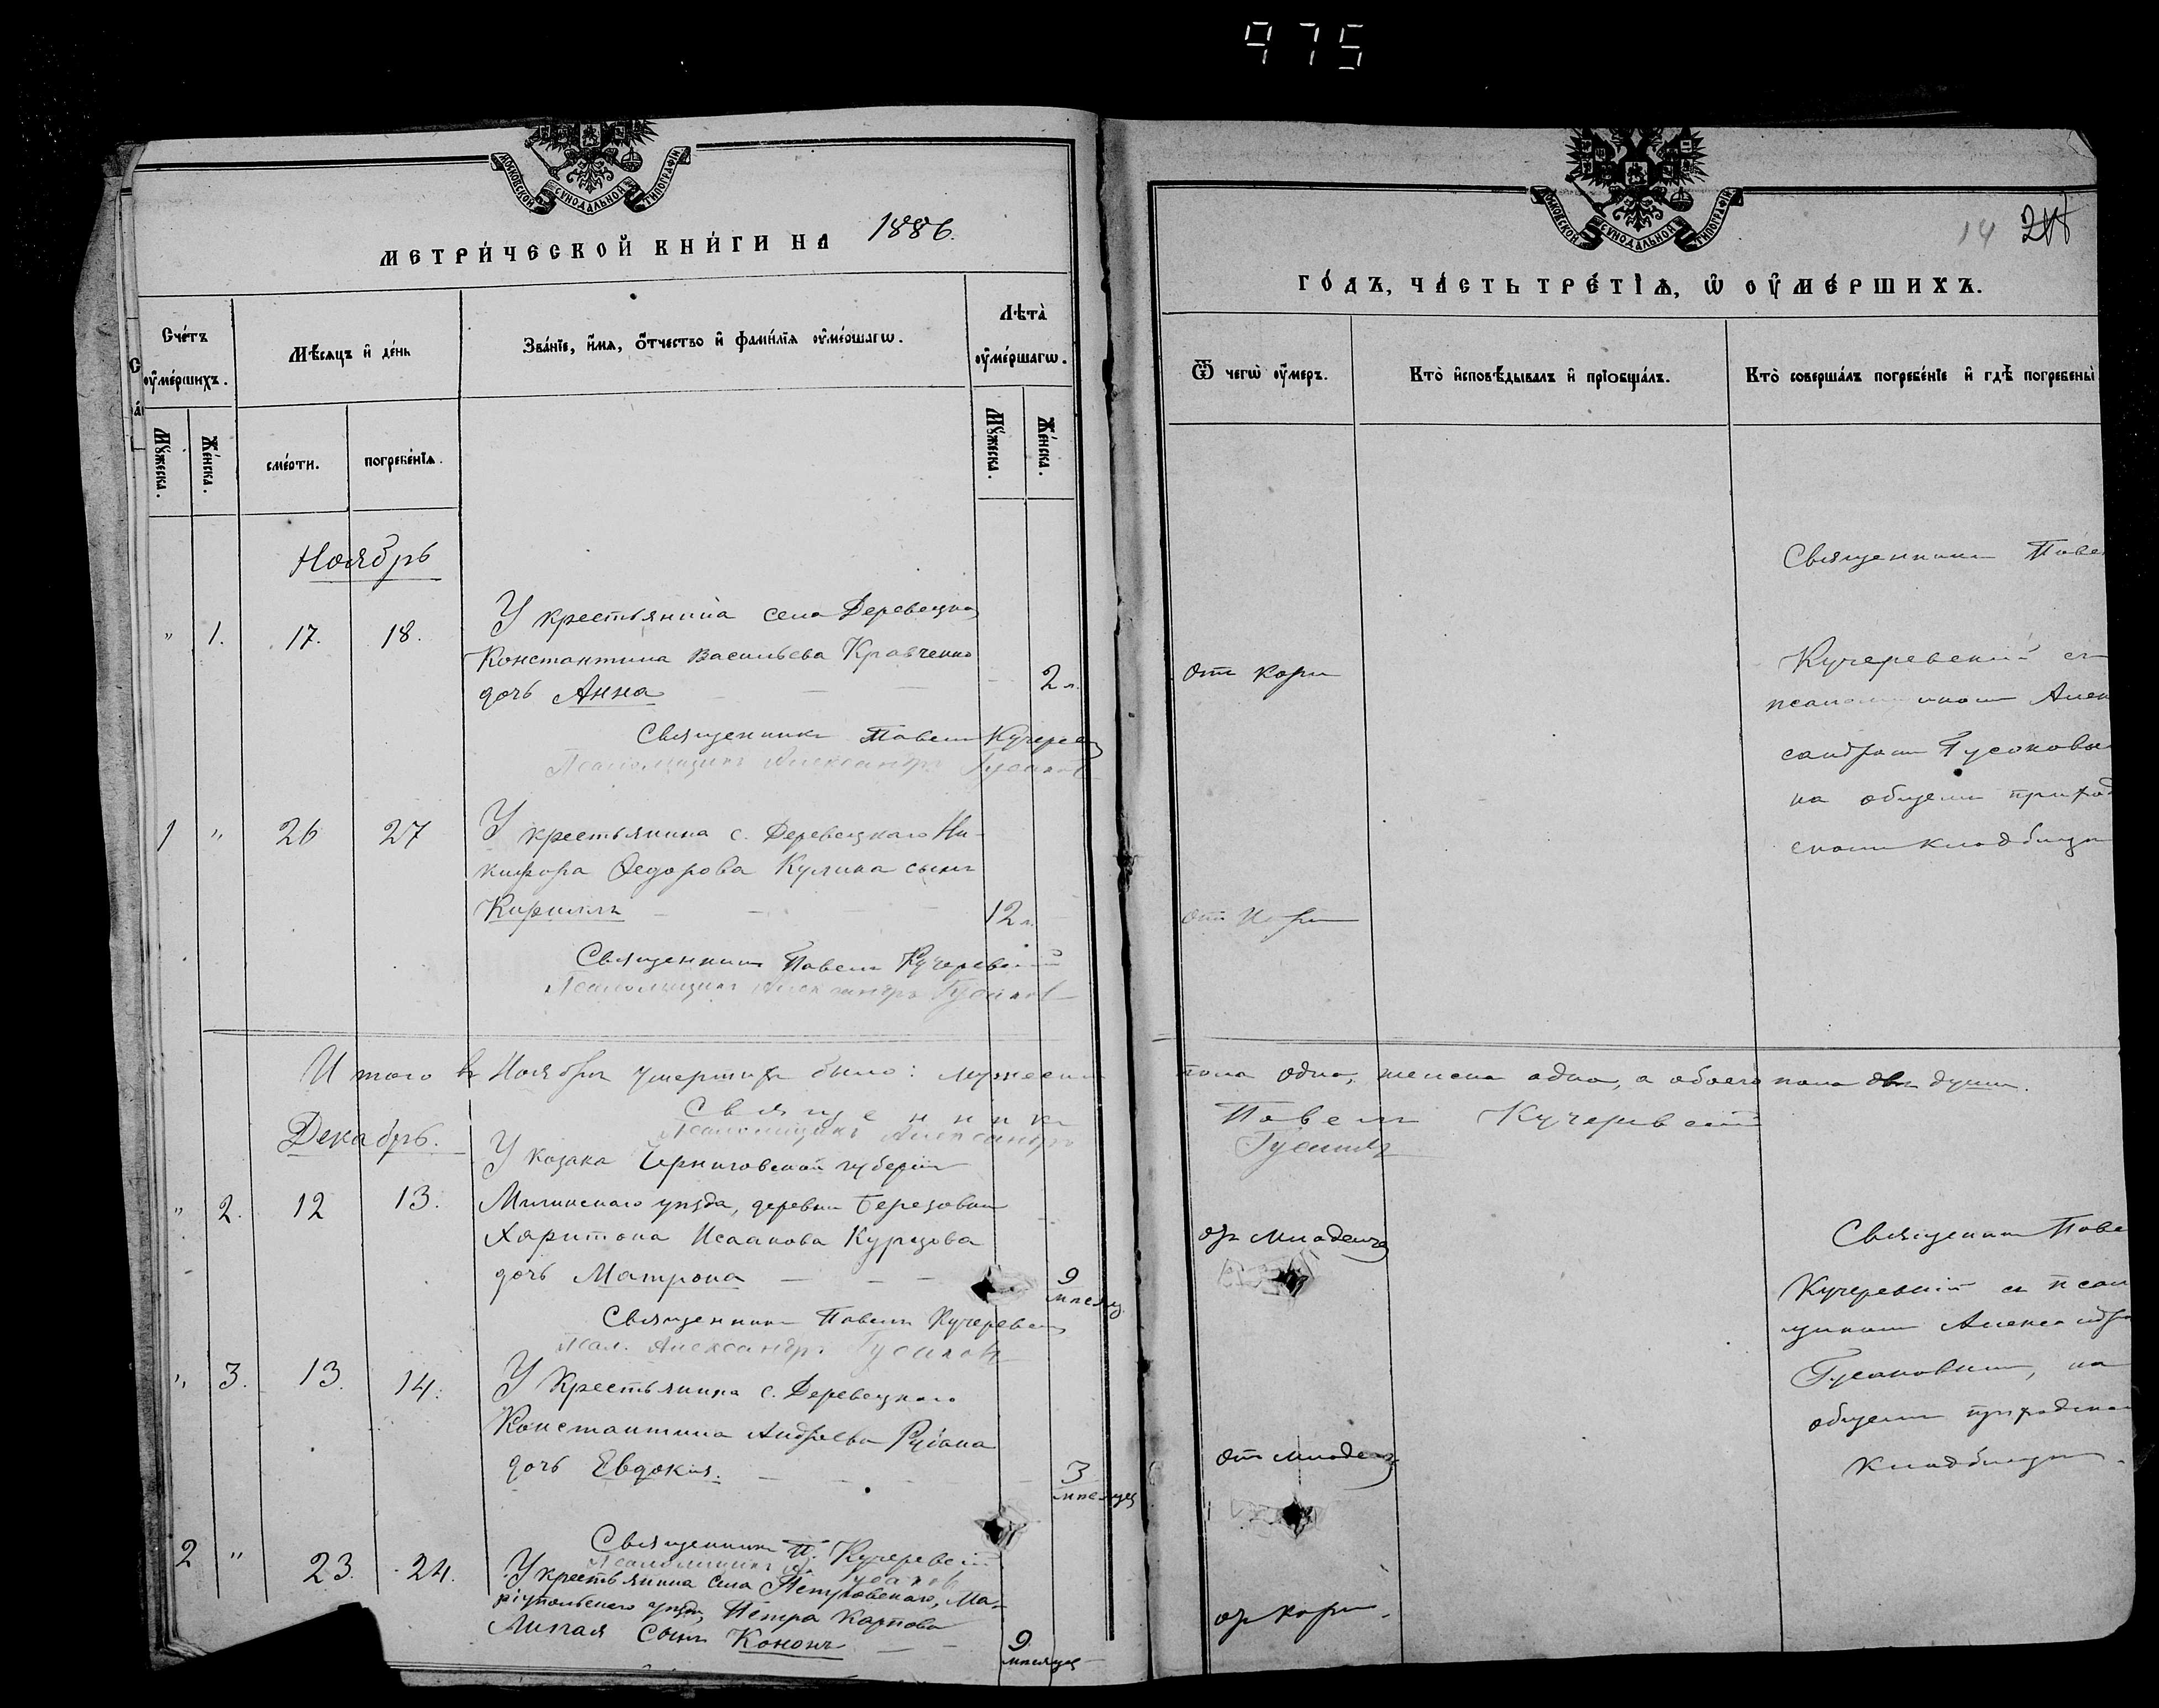 975
МОСКОВСКОЙ СУНОДАЛЬНОЙ ТИПОГРАФІИ
МЕТРИ́ЧЕСКОЙ КНИ́ГИ НА 1886.
Сче́тъ оу҆ме́ршихъ.
Мѣ́сяцъ и҆ де́нь
Зва́нїе, и҆́мѧ, ѻ҆́тчество и҆ фами́лїѧ оу҆ме́ршагѡ.
Лѣта̀ оу҆ме́ршагѡ.
Мꙋ́жеска.
Же́нска.
сме́рти.
погребе́нїѧ.
Мꙋ́жеска.
Же́нска.
Ноябрь
" 1. 17. 18.
У крестьянина села Деревецка
Константина Васильева Кравченко
дочь Анна 2 л.
Священникъ Павелъ Кучеревскій
Псаломщикъ Александръ Гусаковъ
1 " 26 27
У крестьянина с. Деревецкаго Ни-
кифора Ѳедорова Кулика сынъ
Кириллъ 12 л.
Священникъ Павелъ Кучеревскій
Псаломщикъ Александръ Гусаковъ
Итого въ Ноябрѣ умершихъ было: мужеска
Священникъ
Псаломщикъ Александръ
Декабрь.
У козака Черниговской губерніи
" 2. 12 13.
Мглинскаго уѣзда, деревни Березовки
Харитона Исаакова Курцова
дочь Матрона 9 мѣсяц.
Священникъ Павелъ Кучеревскій
Псал. Александръ Гусаковъ
" 3. 13. 14.
У Крестьянина с. Деревецкаго
Константина Андреева
дочь Евдокія. 3 мѣсяцев
Священникъ П. Кучеревскій
Псаломщикъ А. Гусаковъ
2 " 23. 24.
У крестьянина села Петровскаго, Ма-
ріупольскаго уѣзда, Петра Карпова
сынъ Кононъ 9 мѣсяцев
МОСКОВСКОЙ СУНОДАЛЬНОЙ ТИПОГРАФІИ
14
ГО́ДЪ, ЧА́СТЬ ТРЕ́ТІѦ, Ѡ҆ ОУ҆МЕ́РШИХЪ.
Ѿ чегѡ̀ оу҆́меръ.
Кто̀ и҆сповѣ́дывалъ и҆ прїѻбща́лъ.
Кто̀ соверша́лъ погребе́нїе и҆ гдѣ̀ погребены̀
Священникъ Паве
отъ кори
Кучеревскій съ
псаломщикомъ Алек
сандромъ Гусаковы
на общемъ приход
скомъ кладбищѣ
отъ Кори
пола одна, женска одна, а обоего пола двѣ души.
Павелъ Кучеревскій
Гусаковъ
отъ младенч
Священникъ Паве
Кучеревскій съ псалом
щикомъ Александро
Гусаковымъ, на
общемъ приходском
кладбищѣ.
отъ младенч
отъ кори.